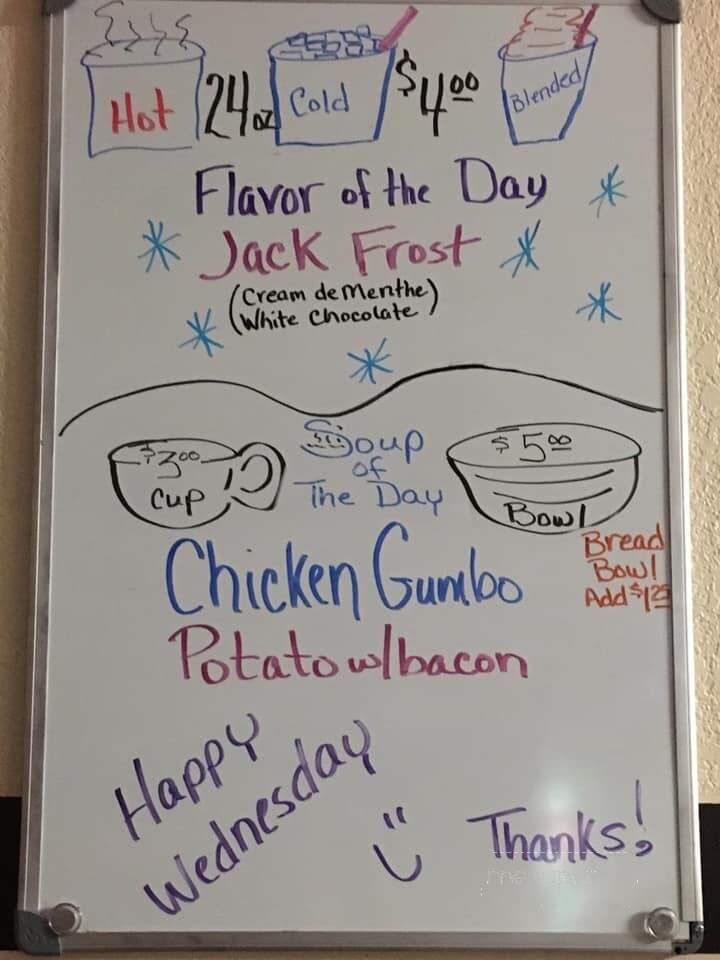 Hot 24oz Cold $4.00 Blended
Flavor of the Day
Jack Frost
(Cream de Menthe)
(White Chocolate)
$3.00 Cup
Soup
of
The Day
$5.00
Bowl
Bread
Bowl
Add $1.25
Chicken Gumbo
Potato w/bacon
Happy
Wednesday
Thanks!